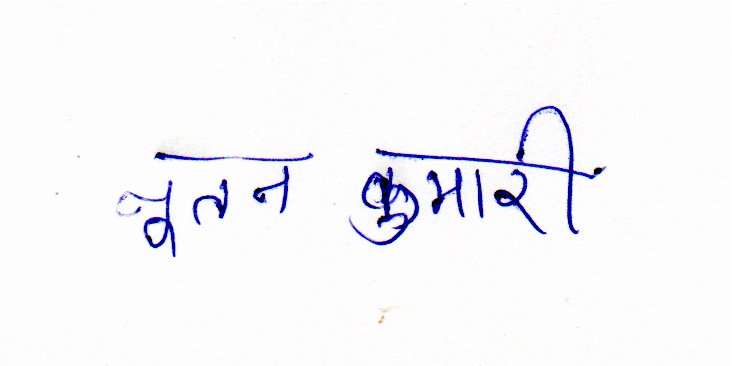 नूतन कुमारी